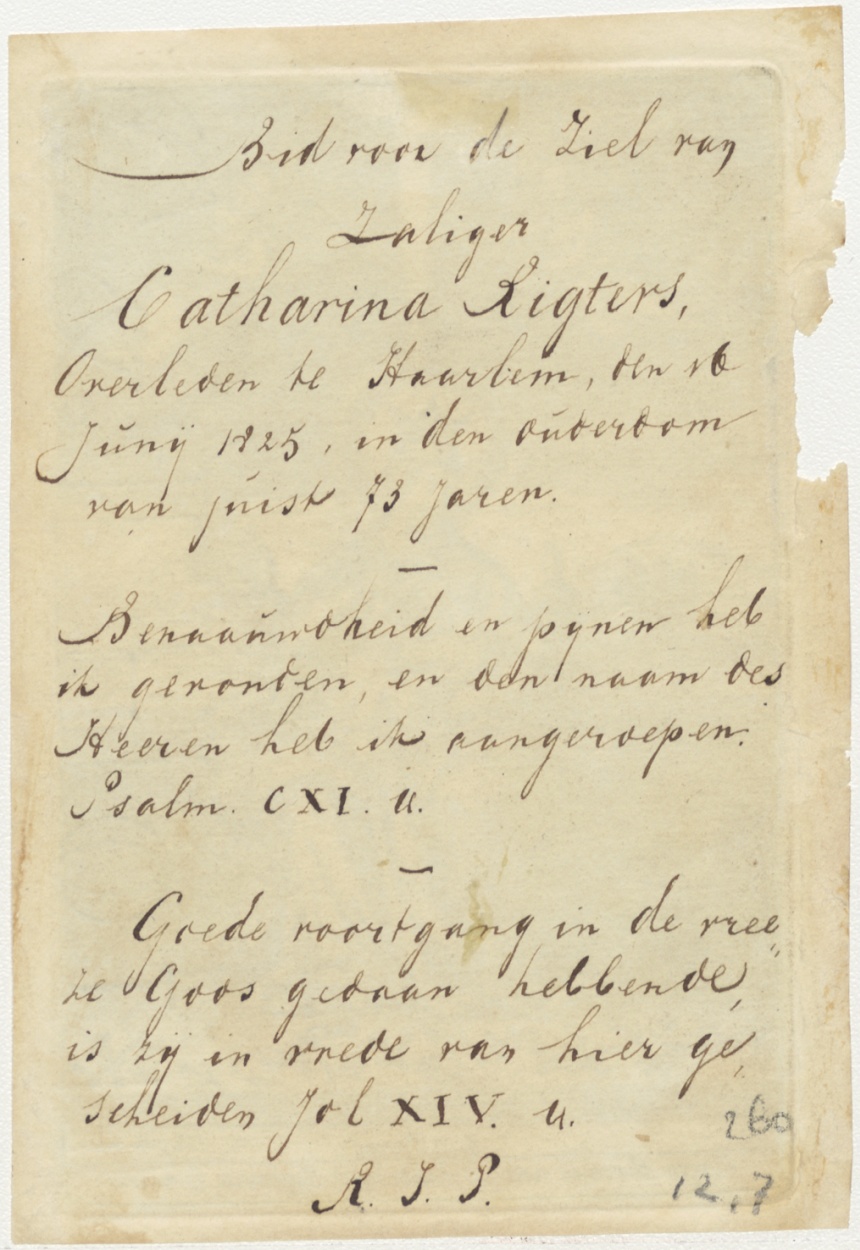 Bid voor de Ziel van
Zaliger
Catharina Rigters,
Overleden te Haarlem, den 16
Junij 1825, in den ouderdom
van juist 73 Jaren.
—
Benaauwdheid en pijnen heb
ik gevonden, en den naam des
Heeren heb ik aangeroepen.
Psalm. CXI. u.
—
Goede voortgang in de vree„
ze Gods gedaan hebbende,
is zij in vrede van hier ge„
scheiden Job XIV. u.
R. I. P.
260
12,7